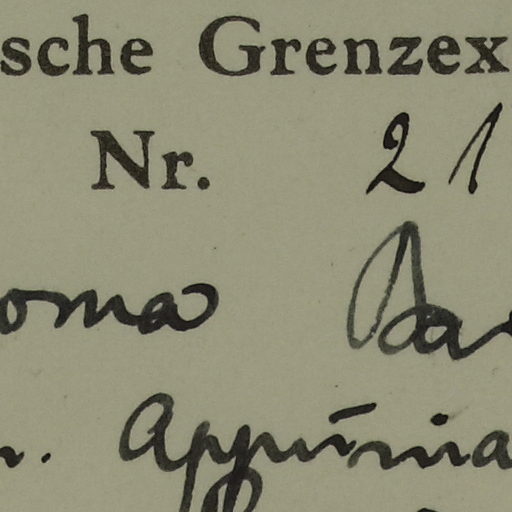 sche Grenzex
Nr. 21
oma Bar
n. Appūnia